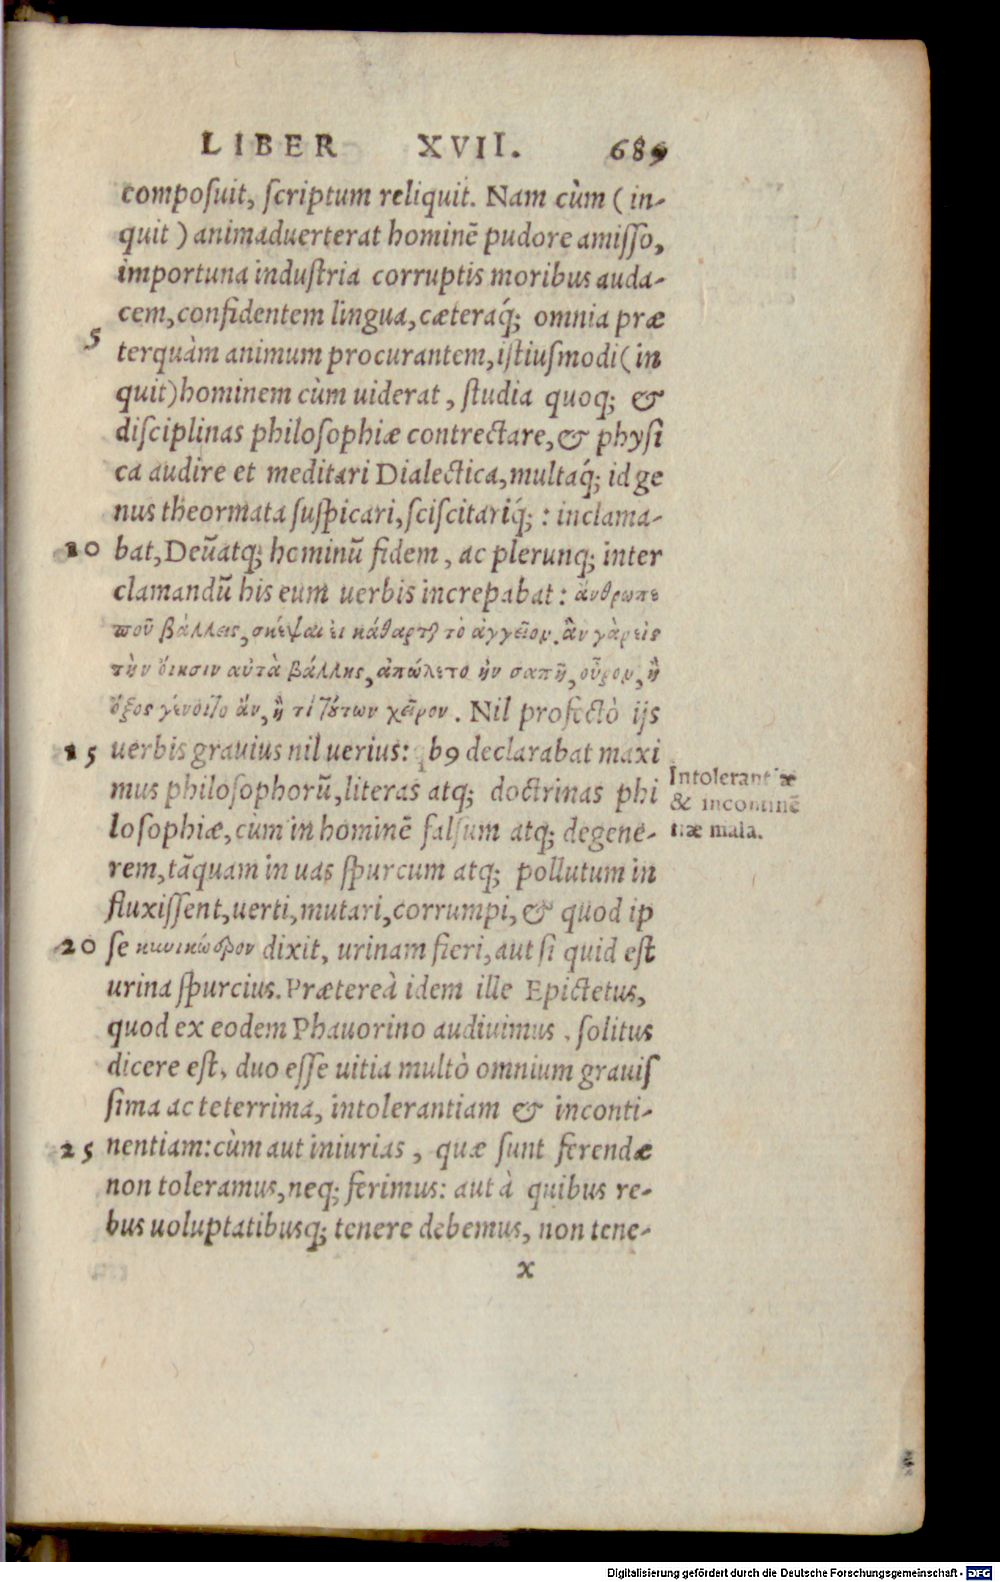 LIBER XVII. 689
composuit, scriptum reliquit. Nam cùm (in-
quit) animaduerterat hominē pudore amisso,
importuna industria corruptis moribus auda-
cem, confidentem lingua, cæteraq́; omnia præ
5
terquàm animum procurantem, istiusmodi (in
quit) hominem cùm uiderat, studia quoq; &
disciplinas philosophiæ contrectare, & physi
ca audire et meditari Dialectica, multaq́; id ge
nus theormata suspicari, sciscitariq́; : inclama-
10 bat, Deũatq; hominũ fidem, ac plerunq; inter
clamandũ his eum uerbis increpabat: ἄνθρωπε
ποῦ βάλλεις, σκέψαι εἰ κάθαρται τὸ ἀγγεῖον. ἂν γὰρ εἰς
τὴν ὄικσιν αὐτὰ βάλλης, ἀπώλετο ἢν σαπῇ, οὖρον, ἢ
ὄξος γένοιτο ἄν, ἢ τὶ τούτων χεῖρον. Nil profectò ijs
15 uerbis grauius nil uerius: qb9 declarabat maxi
mus philosophorũ, literas atq; doctrinas phi
Intolerantiæ
& incontinē
tiæ mala.
losophiæ, cùm in hominē falsum atq; degene-
rem, tāquam in uas spurcum atq; pollutum in
fluxissent, uerti, mutari, corrumpi, & quod ip
20 se κυνικώσρον dixit, urinam fieri, aut si quid est
urina spurcius. Prætereà idem ille Epictetus,
quod ex eodem Phauorino audiuimus, solitus
dicere est, duo esse uitia multò omnium grauis
sima ac teterrima, intolerantiam & inconti-
25 nentiam: cùm aut iniurias, quæ sunt ferendæ
non toleramus, neq; ferimus: aut à quibus re-
bus uoluptatibusq; tenere debemus, non tene-
x
Digitalisierung gefördert durch die Deutsche Forschungsgemeinschaft - DFG